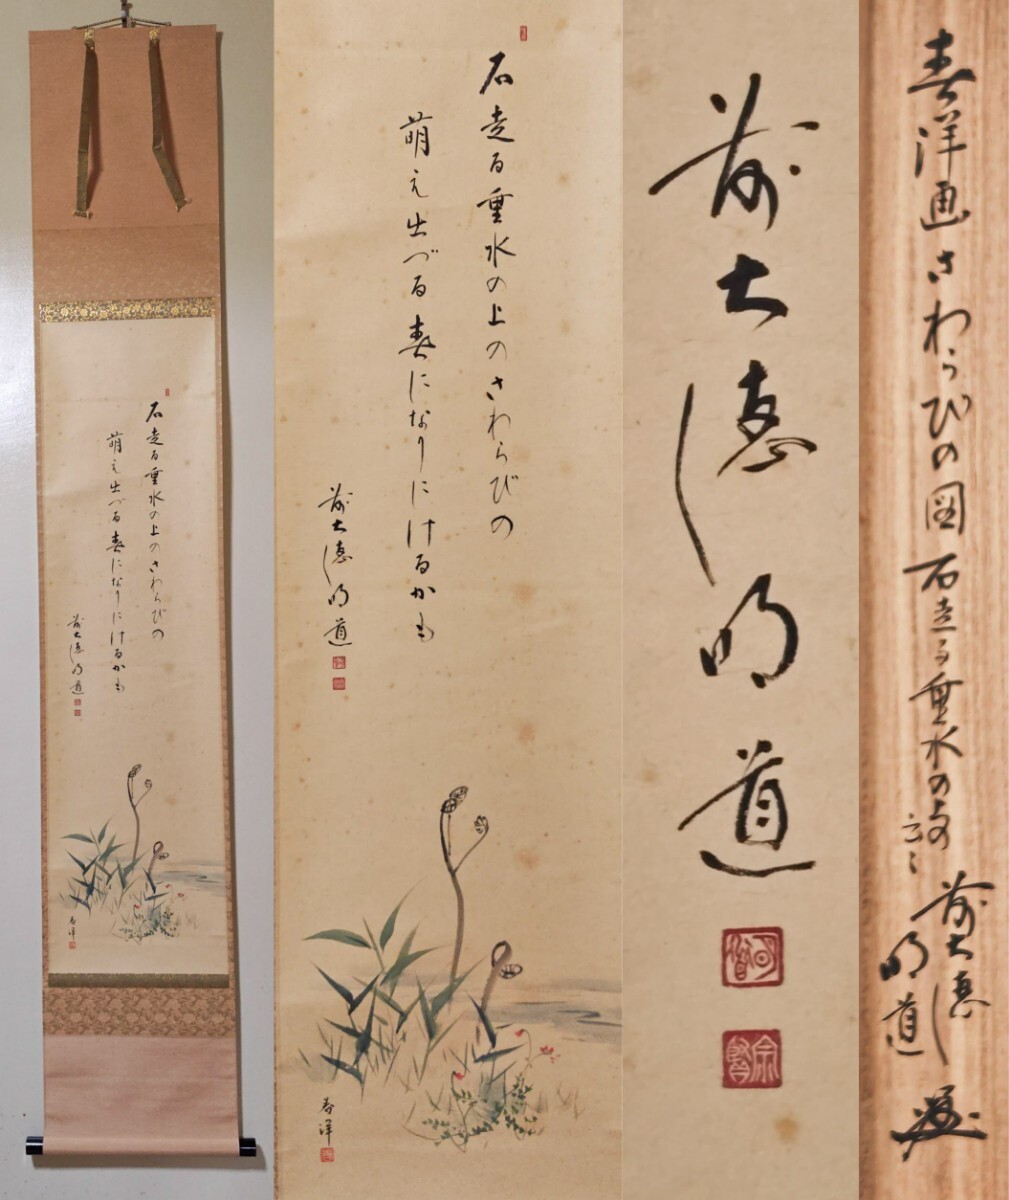 石走る垂水の上のさわらびの
萌え出づる春になりにけるかも
前大徳明道
春洋
石走る垂水の上のさわらびの
萌え出づる春になりにけるかも
前大徳明道
春洋
前大徳明道
春洋画さわらびの図石走る垂水の歌
云々
前大徳
明道